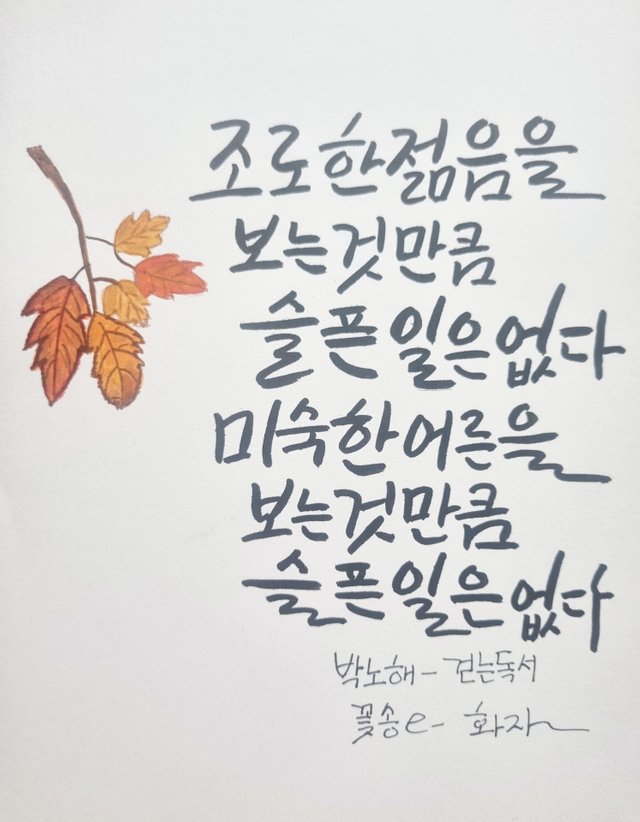 조로한 젊음을
보는 것만큼
슬픈 일은 없다
미숙한 어른을
보는 것만큼
슬픈 일은 없다
박노해 - 걷는독서
꽃송e - 화자